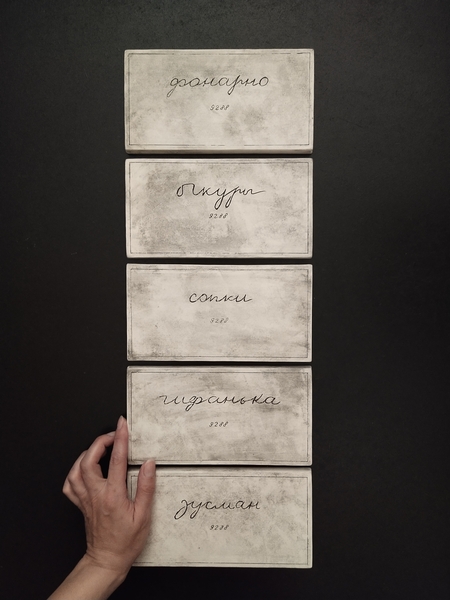 фонарно
9288
очкуры
9288
сопки
9288
чифанька
9288
зусман
9288